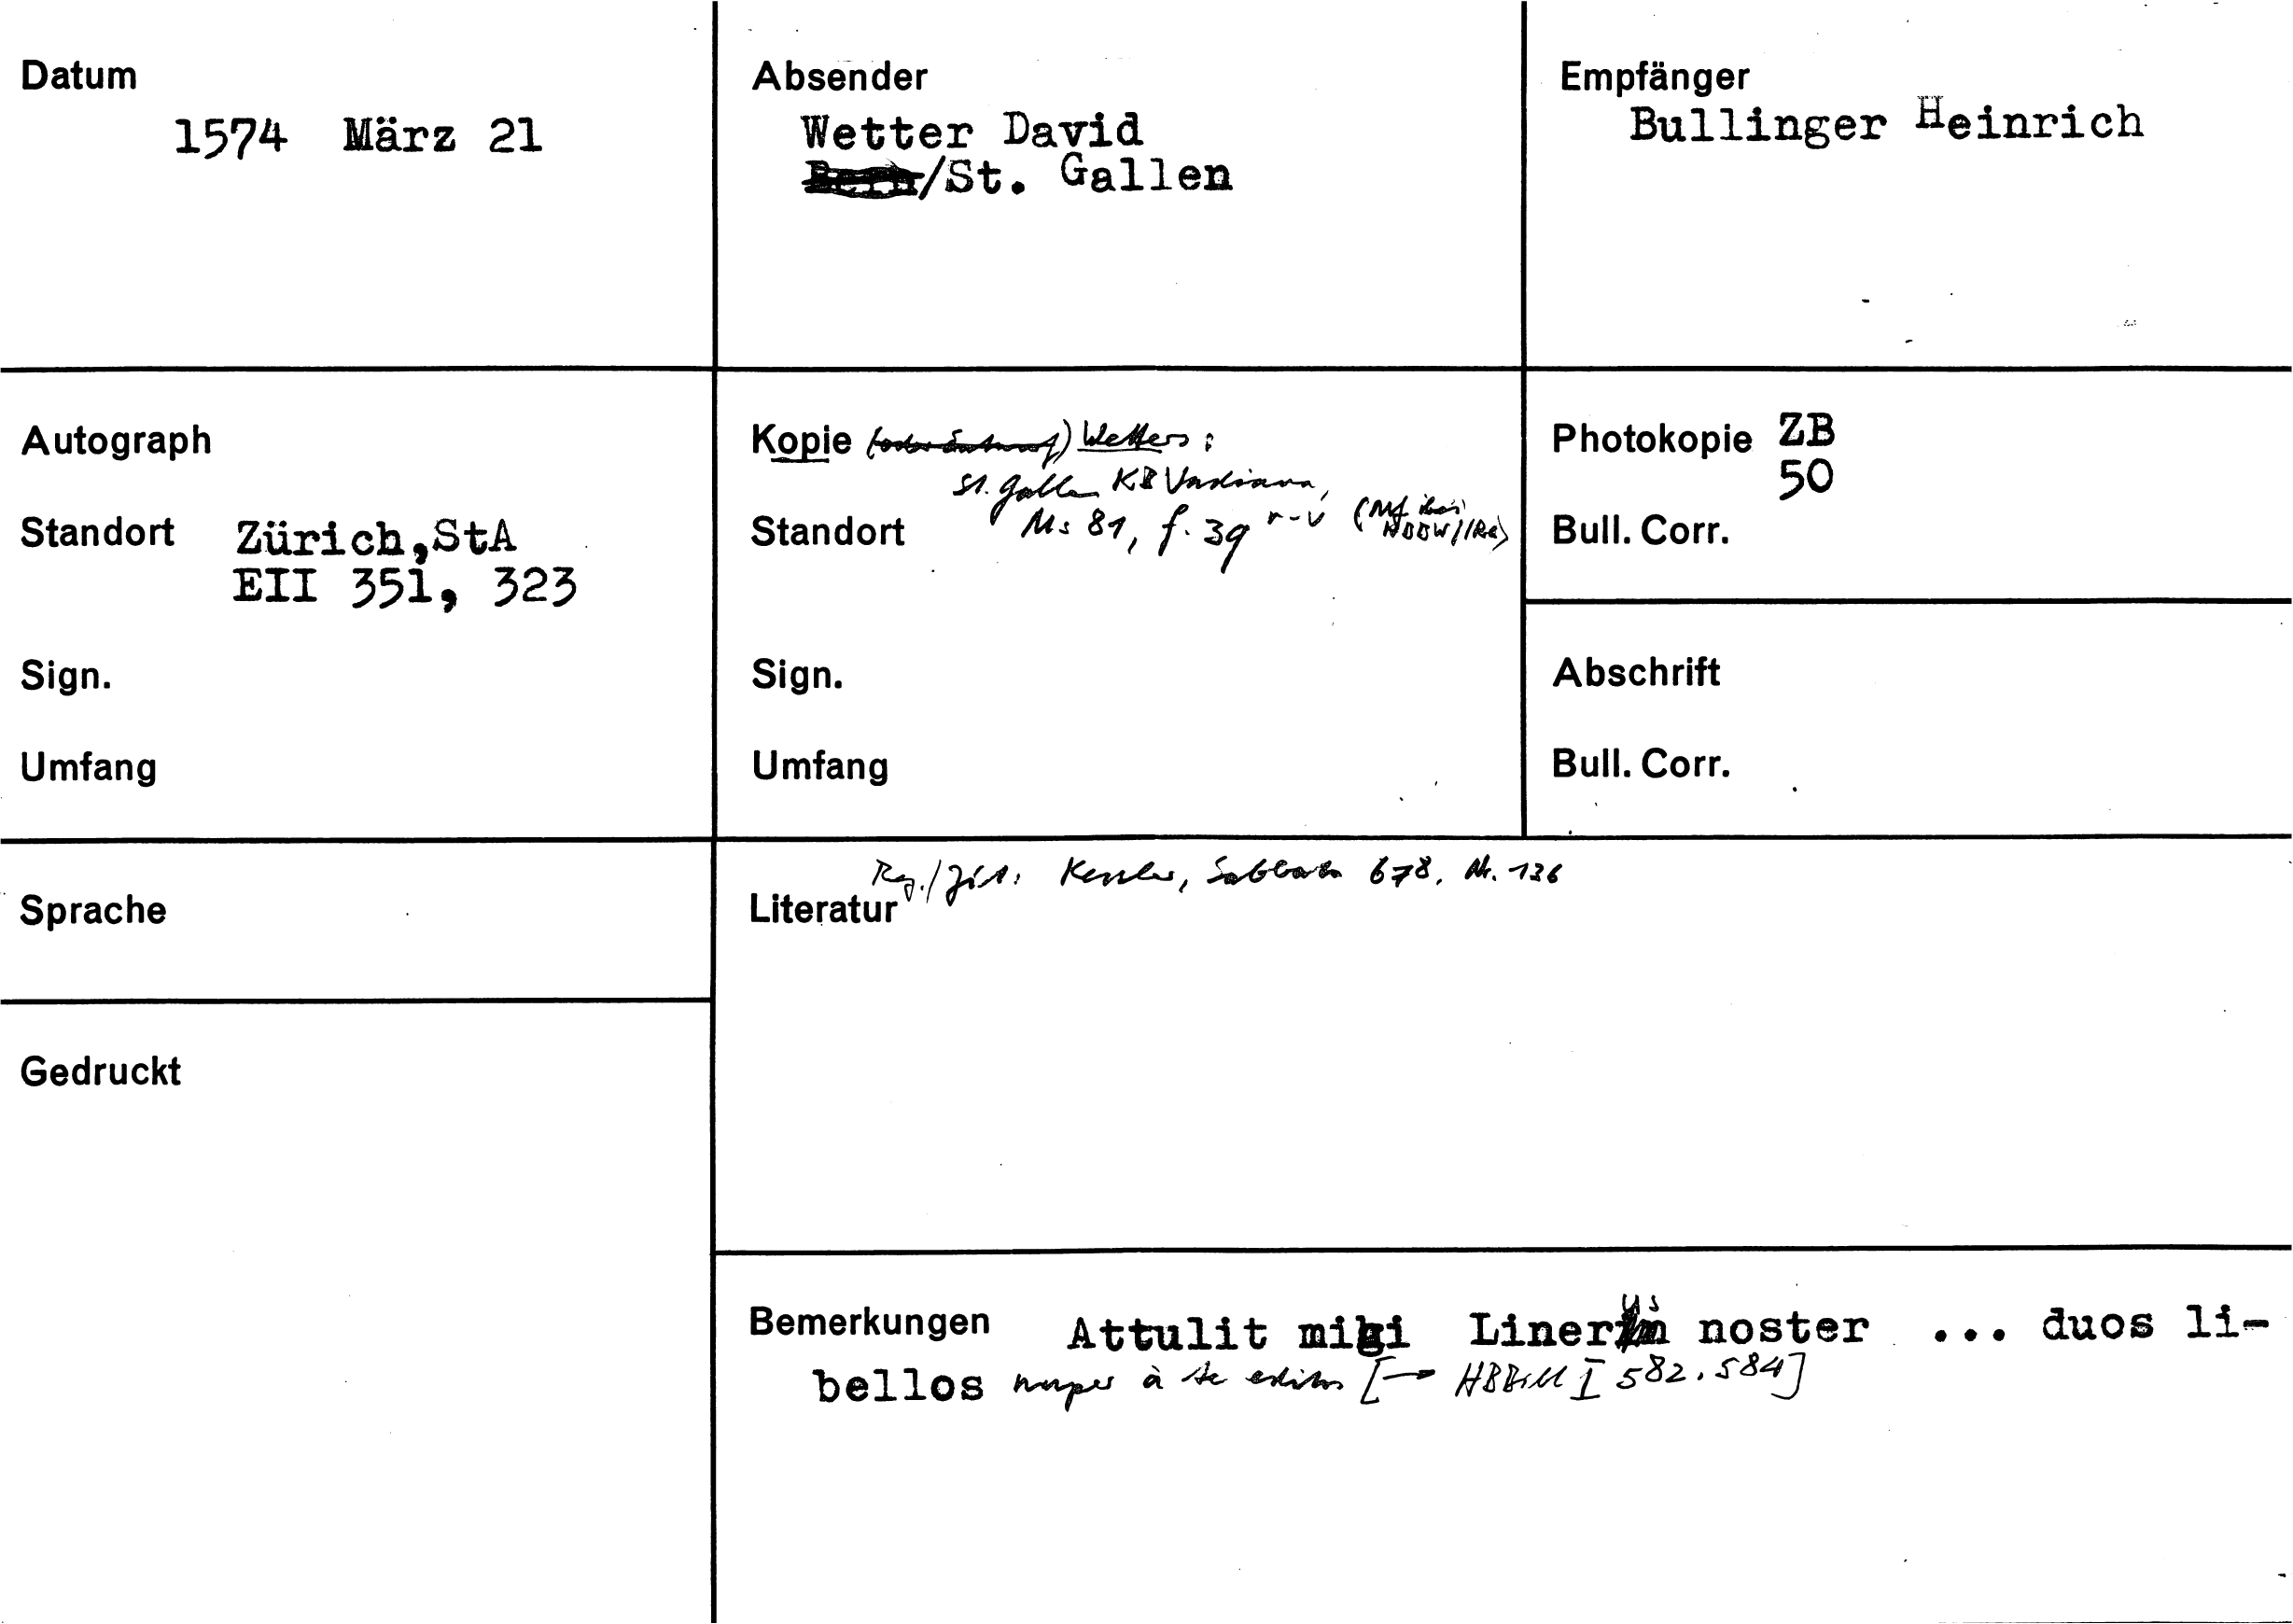 Datum
1574 März 21
Absender
Wetter David
/St. Gallen
Empfänger
Bullinger Heinrich
Autograph
Standort Zürich,StA
EII 351, 323
Sign.
Umfang
Kopie Wetters:
St. Gallen KB Vadiana,
Standort Ms 81, f. 39 r-v (Mf bei
Sign.
Umfang
Photokopie ZB
50
Bull. Corr.
Abschrift
Bull. Corr.
Sprache
Gedruckt
Reg./Zit.: Kessler, Sabbata 678, Nr. 136
Literatur
Bemerkungen Attulit mihi Linerus noster ... duos li-
bellos nuper à te editos [→ HBBibl I 582. 584]